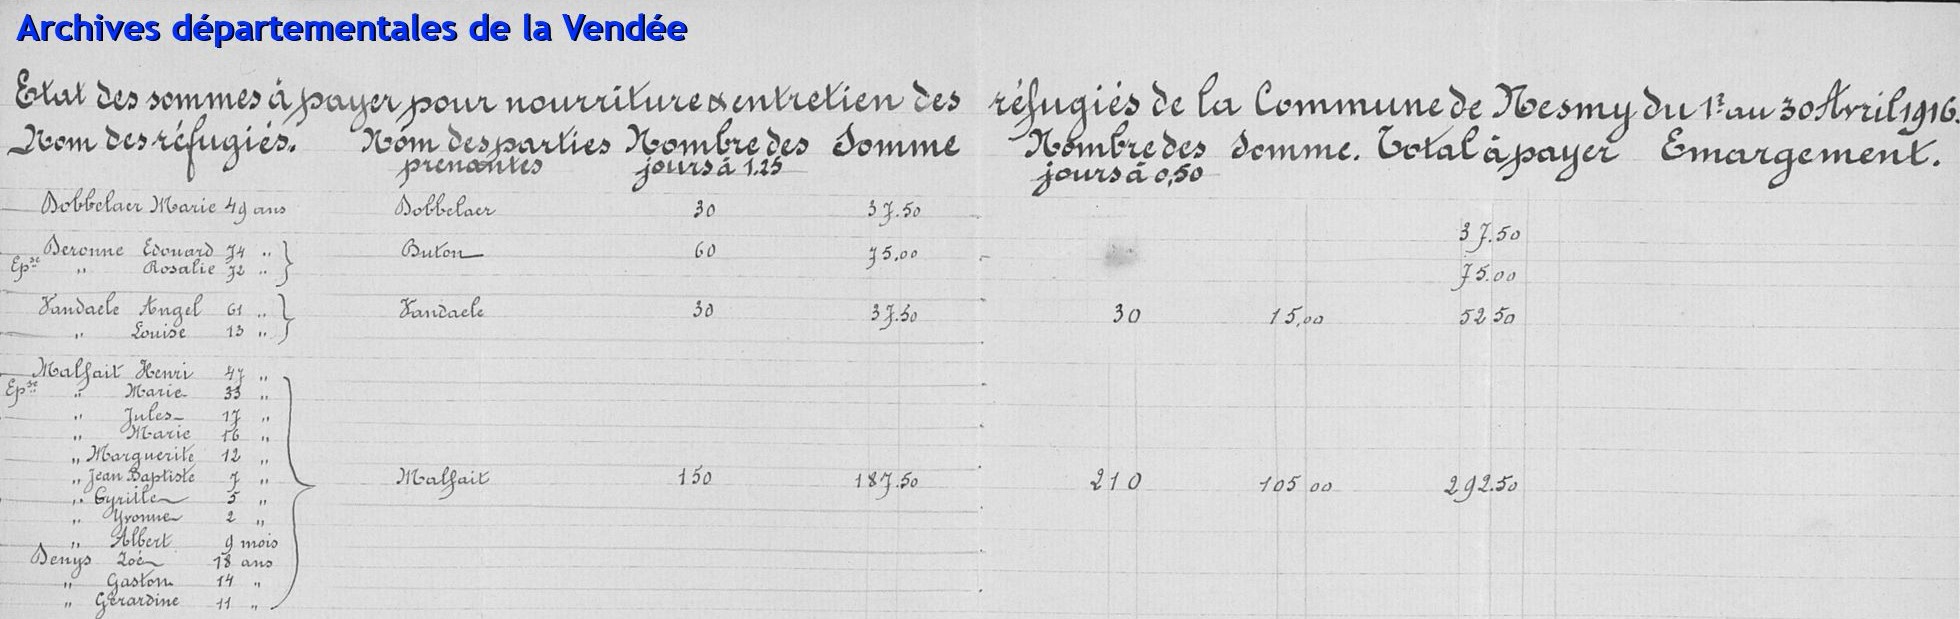 Archives départementales de la Vendée
Etat des sommes à payer pour nourriture & entretien des réfugiés de la Commune de Nesmy du 1er au 30 Avril 1916.
Nom des réfugiés. Nom des parties prenantes Nombre des jours à 1.25 Somme Nombre des jours à 0,50 Somme. Total à payer Emargement.
Dobbelaer Marie 49 ans Dobbelaer 30 37.50 37.50
Deronne Edouard 74 " Buton 60 75,00 75.00
Epse " Rosalie 72 "
Vandaele Angel 61 " Vandaele 30 37.50 30 15,00 52 50
" Louise 13 "
Malfait Henri 47 "
Epse " Marie 33 "
" Jules 17 "
" Marie 16 "
" Marguerite 12 "
" Jean Baptiste 7 " Malfait 150 187.50 210 105 00 292.50
" Cyrille 5 "
" Yvonne 2 "
" Albert 9 mois
Denys Zoé 18 ans
" Gaston 14 "
" Gérardine 11 "